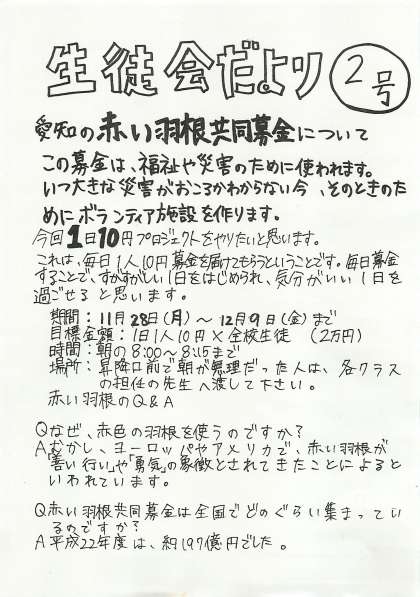 生徒会だより 2号
愛知の赤い羽根共同募金について
この募金は、福祉や災害のために使われます。
いつ大きな災害がおこるかわからない今、そのときのた
めにボランティア施設を作ります。
今回1日10円プロジェクトをやりたいと思います。
これは、毎日1人10円募金を届けてもらうということです。毎日募金
することで、すがすがしい1日をはじめられ、気分がいい1日を
過ごせると思います。
期間：11月28日(月)～12月9日(金)まで
目標金額：1日1人10円×全校生徒 (2万円)
時間：朝の8:00～8:15まで
場所：昇降口前で朝が無理だった人は、各クラス
の担任の先生へ渡して下さい。
赤い羽根のQ&A
Qなぜ、赤色の羽根を使うのですか？
Aむかし、ヨーロッパやアメリカで、赤い羽根が
「善い行い」や「勇気」の象徴とされてきたことによると
いわれています。
Q赤い羽根共同募金は全国でどのぐらい集まってい
るのですか？
A平成22年度は、約197億円でした。